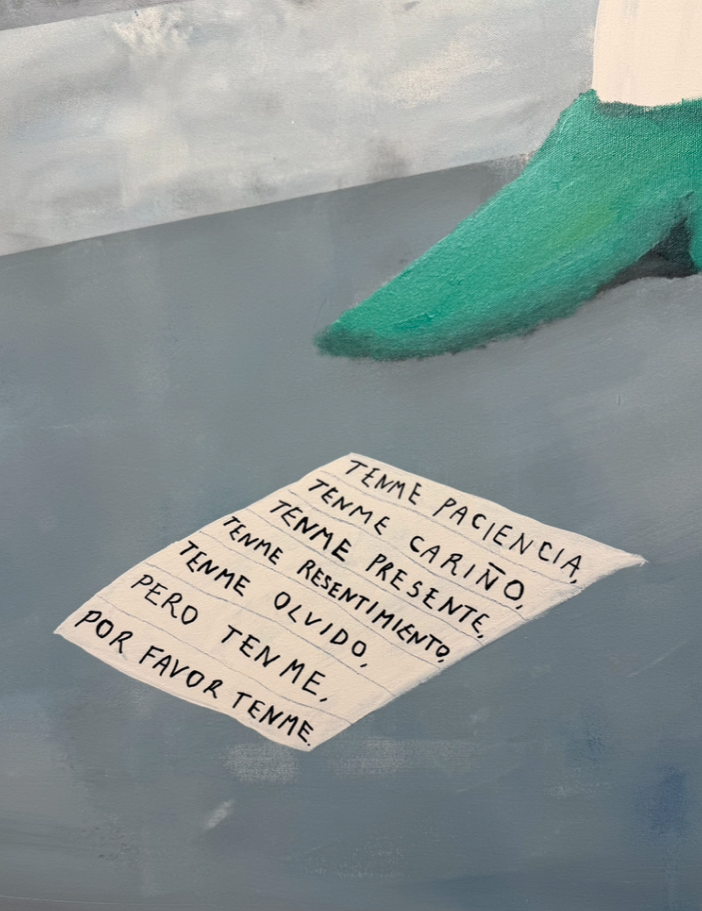 TENME PACIENCIA,
TENME CARIÑO,
TENME PRESENTE,
TENME RESENTIMIENTO,
TENME OLVIDO,
PERO TENME,
POR FAVOR TENME.